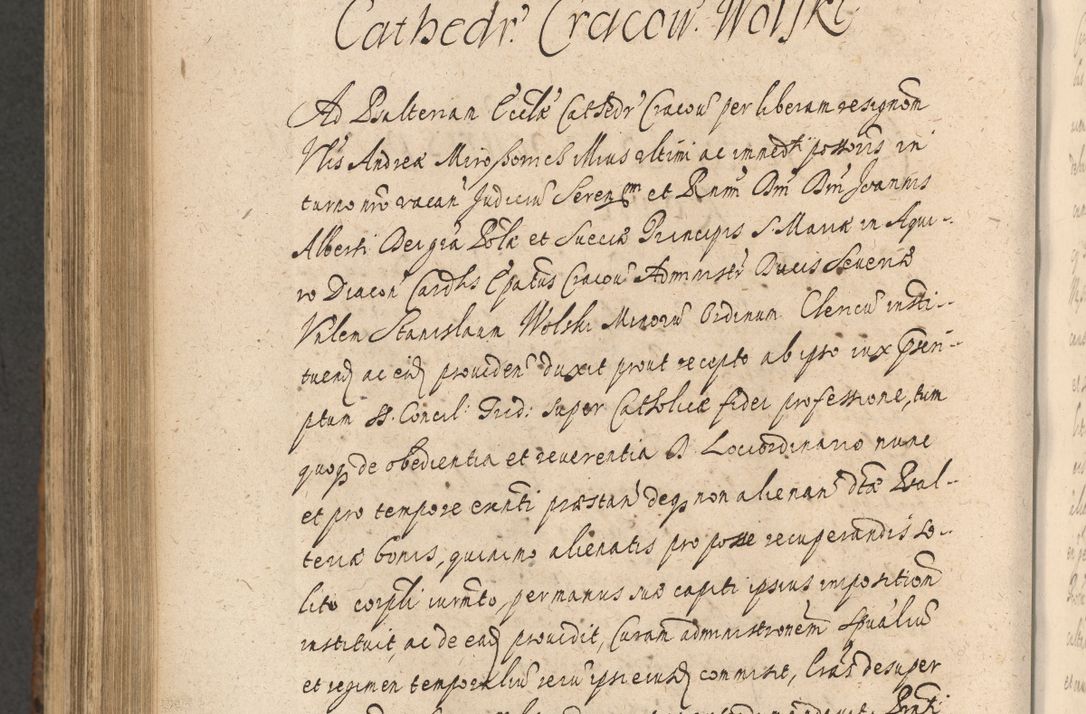 Cathedr. Cracou. Wolski
Ad Psalteriam Eccl̃æ Cathedr̃ Cracoũ per liberam resignõn
Vl̃is Andreæ Miroszowic illius ultimi ac immedt̃i possoris̃ in
turno nr̃o vacañ Judiciũ Serenssm̃ et Rñm Dñm Dñm Joannis
Alberti Dei gr̃a Pol̃æ et Sueciæ Principis S. Mariæ in Aqui-
ro Diacoñ Cardl̃is Ep̃atus Cracoũ Administr̃ Ducis Seueriæ
Valen Stanislaum Wolski Minorũ Ordinum Clericũ insti-
tuend ac eid prouideñ duxit prout recepto ab ipso iux p̃scri-
ptum SS. Concil: Trid: super Catholicæ fidei professione, tum
quoq de obedientia et reuerentia R. Lociordinario nunc
et pro tempore exñti præstañ deq non alienañ dc̃tæ Psal-
teriæ bonis, quinimo alienatis pro posse recuperandis so-
lito corpl̃i iurm̃to, per manus suæ capiti ipsius impositionẽ
instituit, ac de ead prouidit, Curam administronẽm Sp̃ualiũ
et regimen temporaliũ rerũ ipsi eiusd commisit, Lr̃as desuper
Pñti